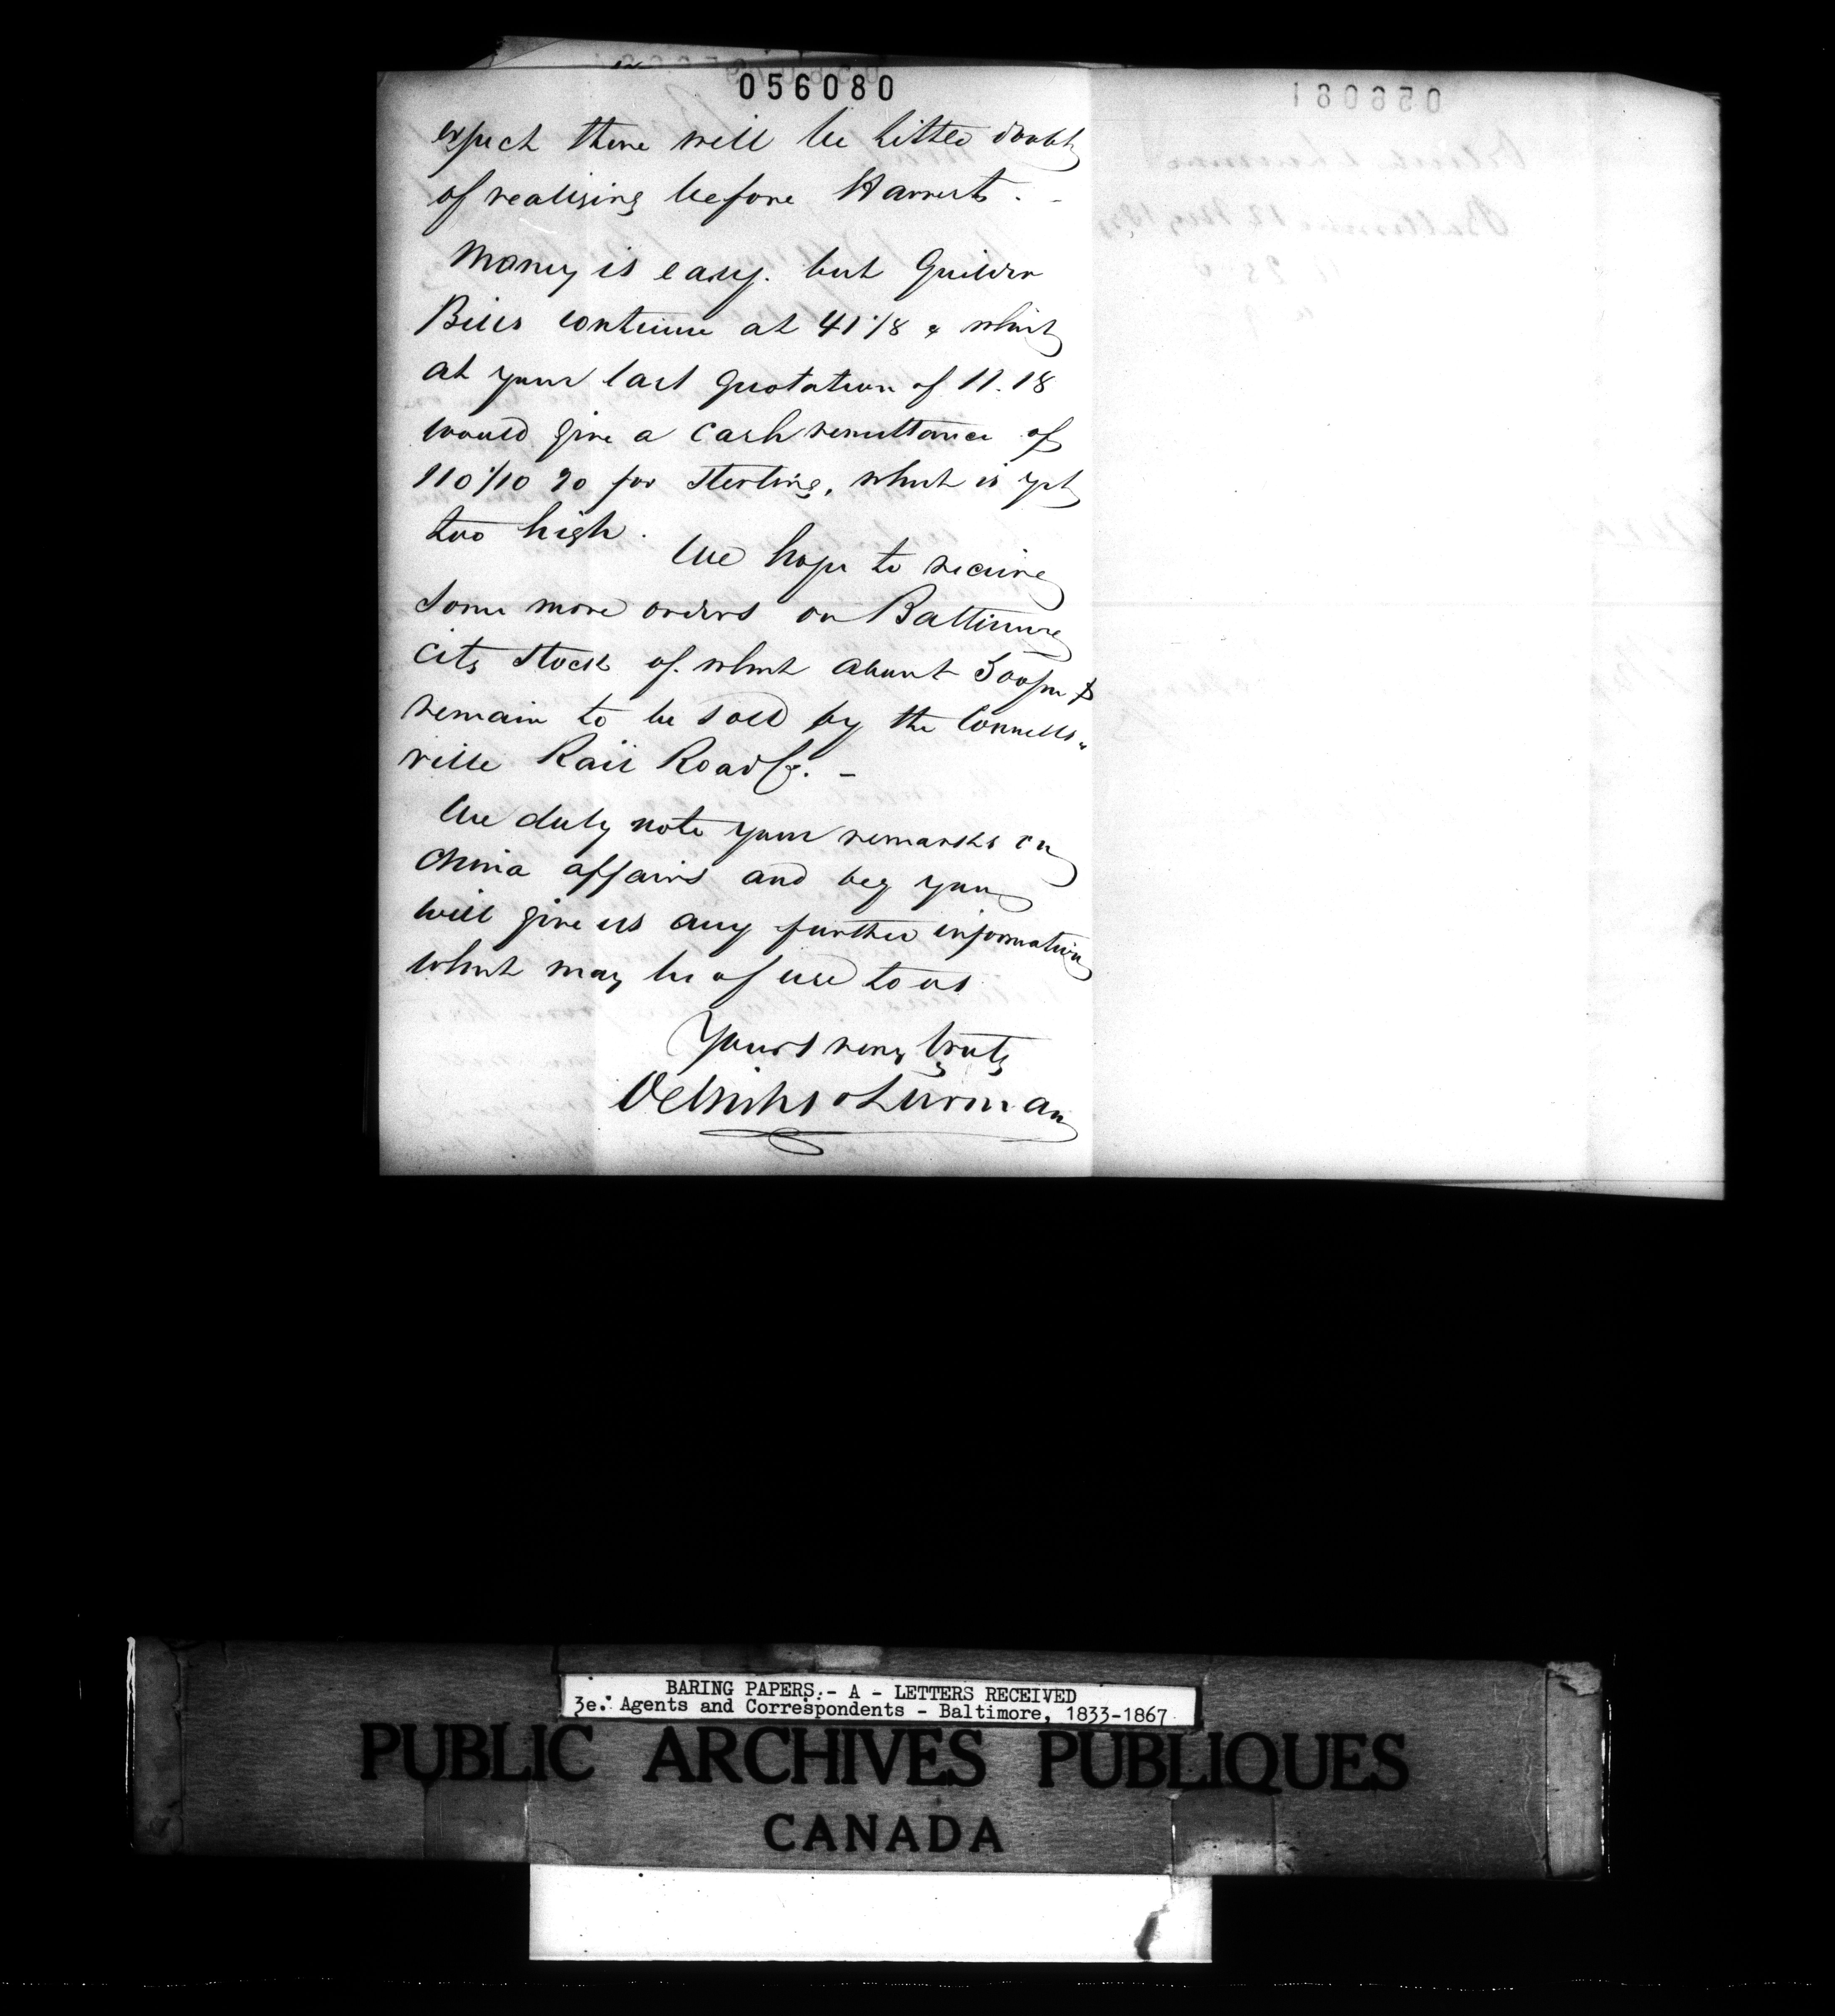 056080
expect there will be little doubt
of realising before Harvest. -
Money is easy. but Guilder
Bills continue at 41 1/8 & which
at your last quotation of 11.18
would give a cash remittance of
110 1/10 % for Sterling, which is yet
too high.
We hope to receive
some more orders on Baltimore
City Stock of which about 300/m $
remain to be sold by the Connells„
ville Rail Road Co. -
We duly note your remarks on
China affairs and beg you
will give us any further information
which may be of use to us
Yours very truly
Oelrichs & Lurman
056081
Oelrichs & Lurman
Baltimore 12
BARING PAPERS.- A - LETTERS RECEIVED
3e. Agents and Correspondents - Baltimore, 1833-1867
PUBLIC ARCHIVES PUBLIQUES
CANADA